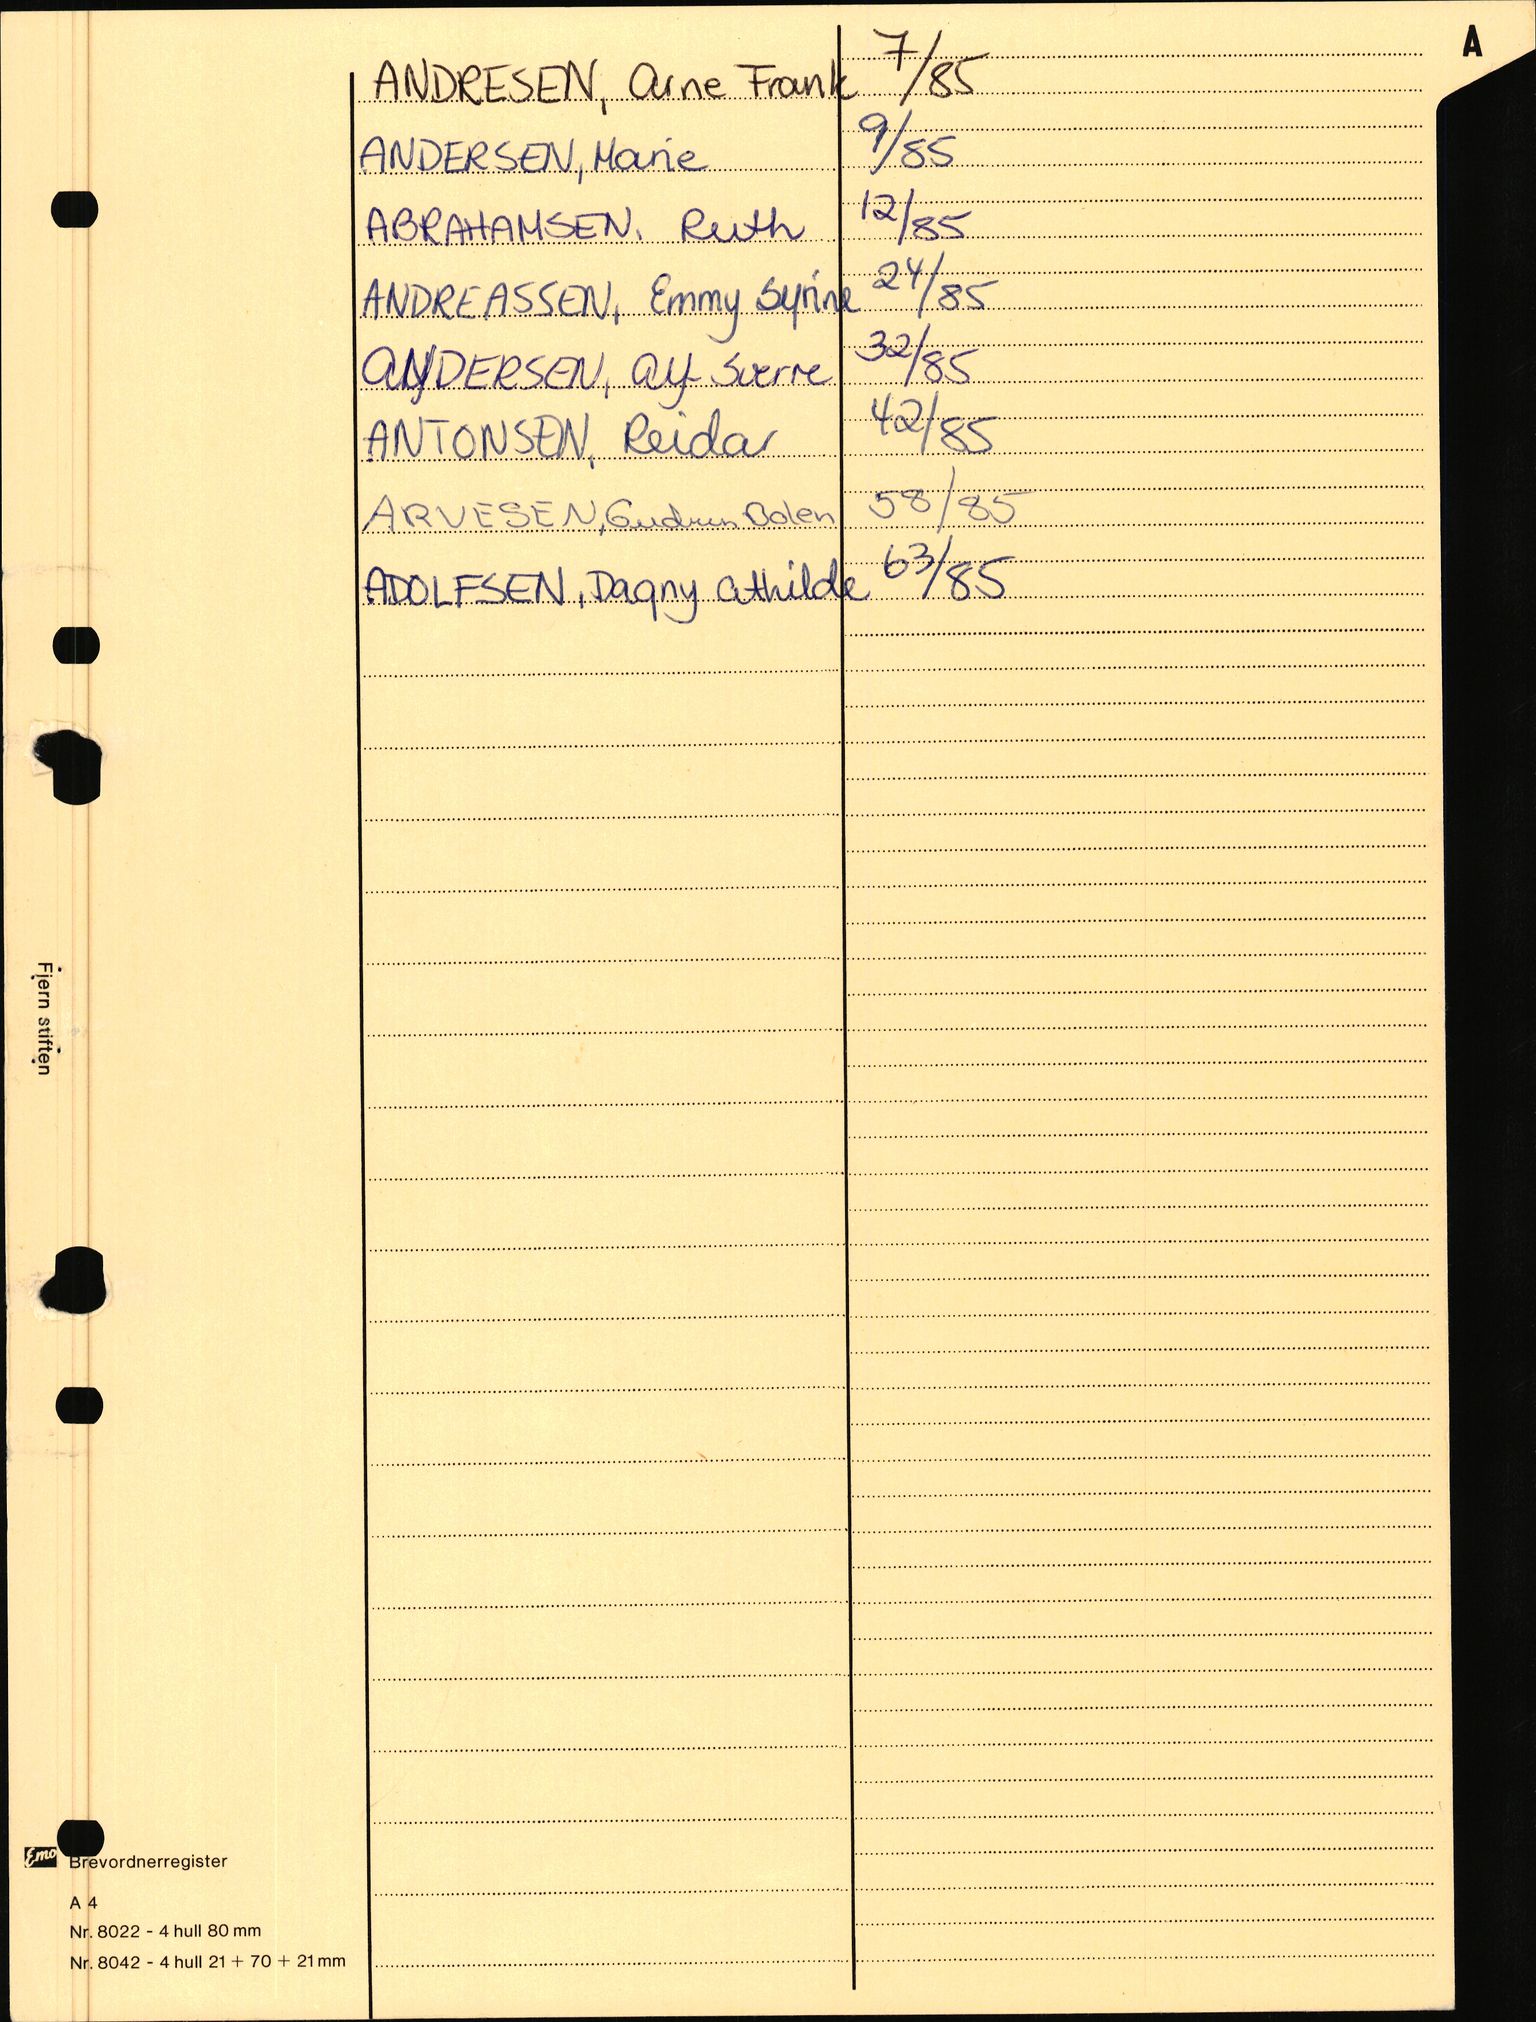 A
ANDRESEN, Arne Frank 7/85
ANDERSEN, Marie 9/85
ABRAHAMSEN, Ruth 12/85
ANDREASSEN, Emmy Syrine 24/85
ANDERSEN, Alf Sverre 32/85
ANTONSEN, Reidar 42/85
ARVESEN, Gudrun Bolen 58/85
ADOLFSEN, Dagny Athilde 63/85
Fjern stiften
Emo Brevordnerregister
A 4
Nr. 8022 - 4 hull 80 mm
Nr. 8042 - 4 hull 21 + 70 + 21 mm